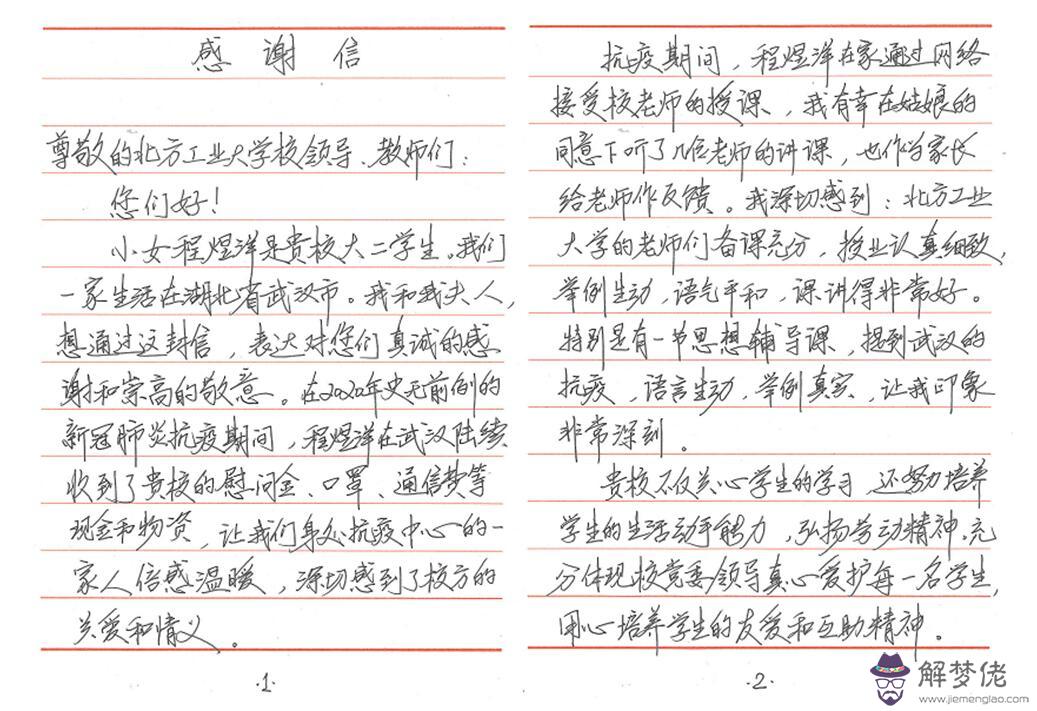 感 谢 信
尊敬的北方工业大学校领导、教师们：
您们好！
小女程煜洋是贵校大二学生。我们
一家生活在湖北省武汉市。我和我夫人，
想通过这封信，表达对您们真诚的感
谢和崇高的敬意。在2020年史无前例的
新冠肺炎抗疫期间，程煜洋在武汉陆续
收到了贵校的慰问金、口罩、通信费等
现金和物资，让我们身处抗疫中心的一
家人倍感温暖，深切感到了校方的
关爱和情义。
·1·
抗疫期间，程煜洋在家通过网络
接受校老师的授课，我有幸在姑娘的
同意下听了几位老师的讲课，也作为家长
给老师作反馈。我深切感到：北方工业
大学的老师们备课充分，授业认真细致，
举例生动，语气平和，课讲得非常好。
特别是有一节思想辅导课，提到武汉的
抗疫，语言生动，举例真实，让我印象
非常深刻。
贵校不仅关心学生的学习，还努力培养
学生的生活动手能力，弘扬劳动精神，充
分体现校党委领导真心爱护每一名学生，
用心培养学生的友爱和互助精神。
·2·
解梦佬
www.jiemenglao.com